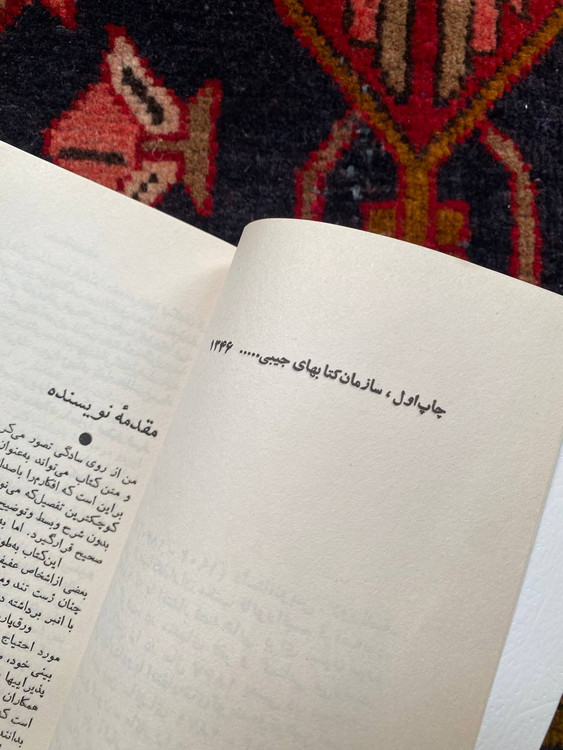 چاپ اول ، سازمان کتابهای جیبی..... ۱۳۴۶
مقدمهٔ نویسنده
من از روی سادگی تصور می‌کر
و متن کتاب می‌تواند به‌عنوان
براین است که افکارم را باصدا
کوچکترین تفصیل‌که می‌تو
بدون شرح وبسط وتوضیح
صحیح قرارگیرد. اما به
این‌کتاب به‌طو
بعضی ازاشخاص عفیف
چنان زشت تند وم
با انبر برداشته د
ورق‌پار
مورد احتیاج
بینی خود،
پذیراییها
همکاران
است که
بدانند